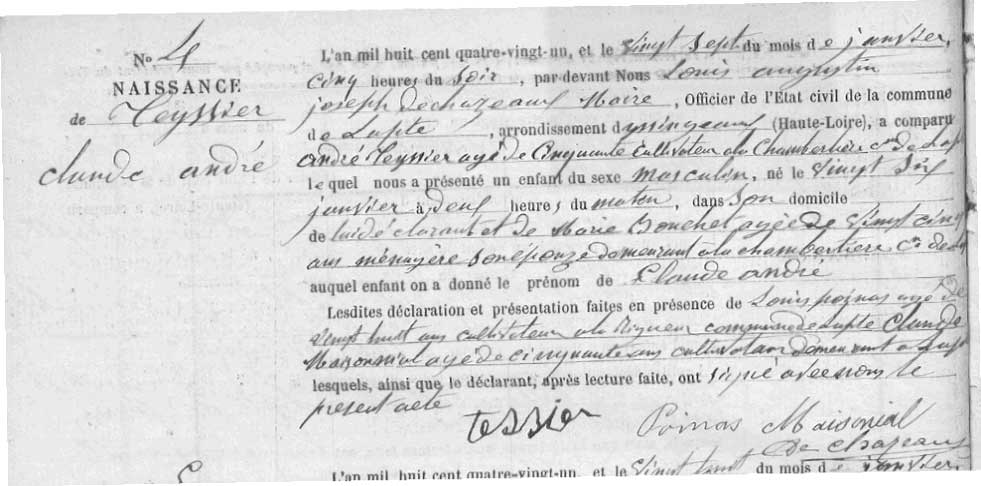 No 4
NAISSANCE
de Teyssier
claude andré
L'an mil huit cent quatre-vingt-un, et le vingt sept du mois de janvier,
cinq heures du soir, par devant Nous Louis augustin
joseph dechazeaux Maire, Officier de l'Etat civil de la commune
de Lapte, arrondissement dyssingeaux (Haute-Loire), a comparu
andré Teyssier agé de Cinquante Cultivateur a la Chambertière cne de
lequel nous a présenté un enfant du sexe masculin, né le vingt six
janvier à deux heures du matin, dans son domicile
de lui déclarant et de Marie Bouchet agée de vingt cinq
ans ménagère son épouze demeurant a la chambertiere cne de
auquel enfant on a donné le prénom de Claude andré
Lesdites déclaration et présentation faites en présence de Louis poinas agé de
vingt huit ans cultivateur commune de lapte Claude
Maisonnial agé de cinquante ans cultivateur demeurant a
lesquels, ainsi que le déclarant, après lecture faite, ont signé avec nous le
présent acte
tessier Poinas Maisonial
De Chazeaux
L'an mil huit cent quatre-vingt-un, et le vingt huit du mois de janvier